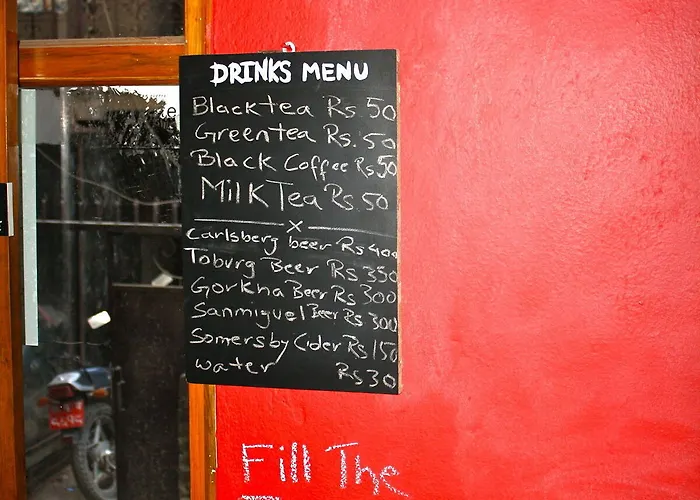 DRINKS MENU
Black tea Rs 50
Green tea Rs. 50
Black Coffee Rs 50
Milk Tea Rs. 50
x
Carlsberg beer Rs 400
Toburg Beer Rs 350
Gorkha Beer Rs 300
Sanmiguel Beer Rs 300
Somersby Cider Rs 150
water Rs 30
Fill The